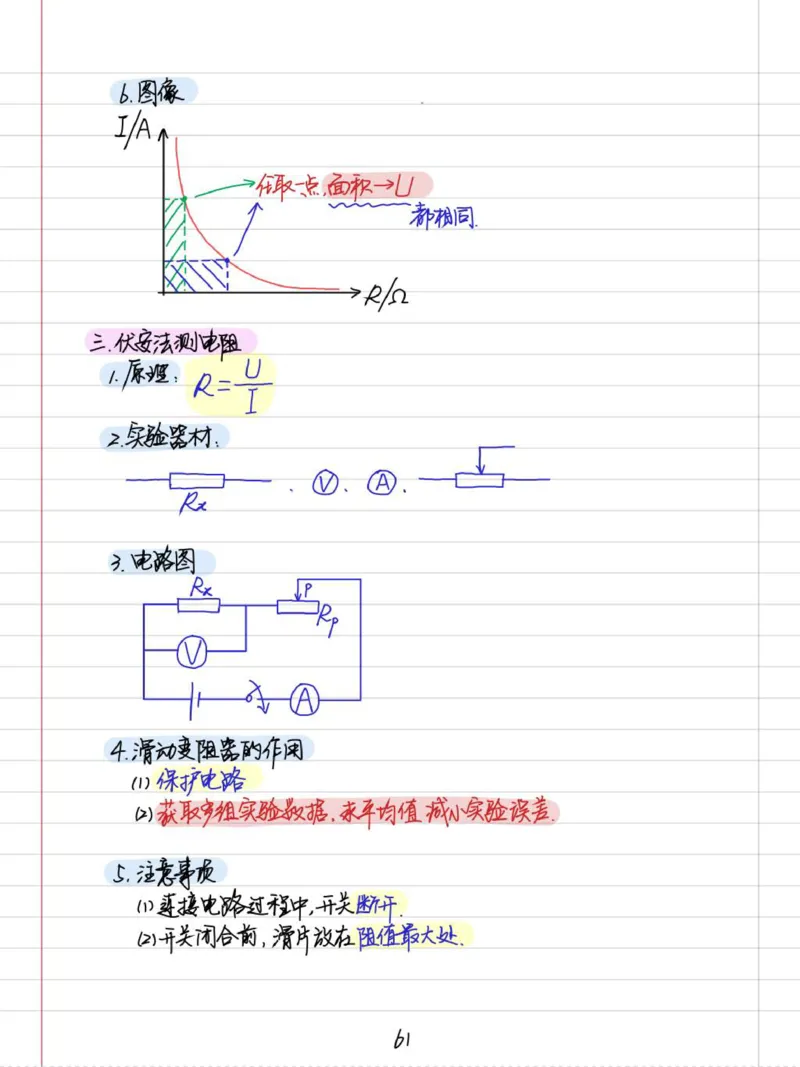 6.图像
I/A
任取一点,面积→U
都相同.
R/Ω
三.伏安法测电阻
1.原理: R=U/I
2.实验器材:
Rx . V . A .
3.电路图
Rx P
Rp
V
A
4.滑动变阻器的作用
(1)保护电路
(2)获取多组实验数据,求平均值减小实验误差.
5.注意事项
(1)连接电路过程中,开关断开.
(2)开关闭合前,滑片放在阻值最大处.
61